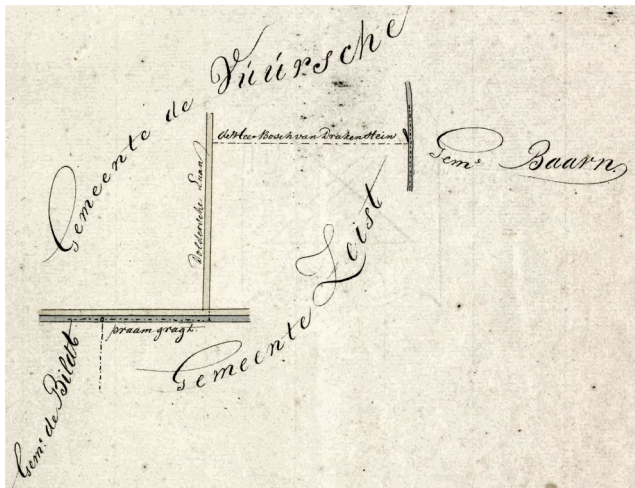 Gemeente de Vúúrsche
de Heer Bosch van Draken Stein
Gem.e Baarn.
Doldersche Laan
Gemeente Zoist
praam gragt
Gem.e de Bildt